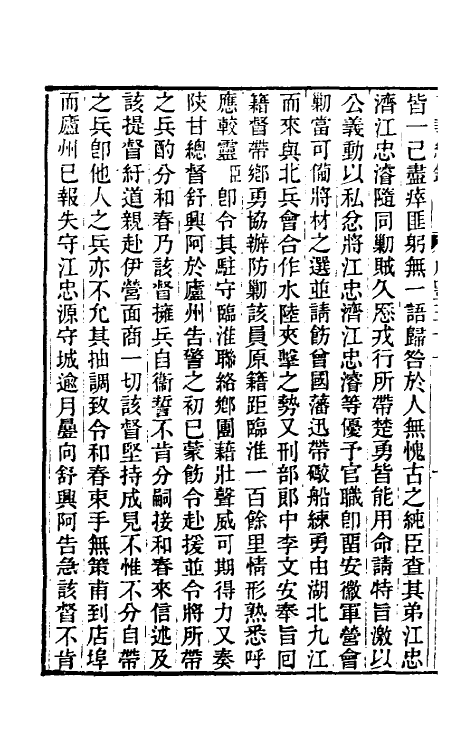 皆一己盡瘁匪躬無一語歸咎於人無愧古之純臣查其弟江忠
濟江忠濬隨同勦賊久歷戎行所帶楚勇皆能用命請特旨激以
公義動以私忿將江忠濟江忠濬等優予官職卽畱安徽軍營會
勦當可備將材之選並請飭曾國藩迅帶礮船練勇由湖北九江
而來與北兵會合作水陸夾擊之勢又刑部郎中李文安奉旨囘
籍督帶鄉勇協辦防勦該員原籍距臨淮一百餘里情形熟悉呼
應較靈臣卽令其駐守臨淮聯絡鄉團藉壯聲威可期得力又奏
陝甘總督舒興阿於廬州告警之初已蒙飭令赴援並令將所帶
之兵酌分和春乃該督擁兵自衞誓不肯分嗣接和春來信述及
該提督紆道親赴伊營面商一切該督堅持成見不惟不分自帶
之兵卽他人之兵亦不允其抽調致令和春束手無策甫到店埠
而廬州已報失守江忠源守城逾月曡向舒興阿告急該督不肯